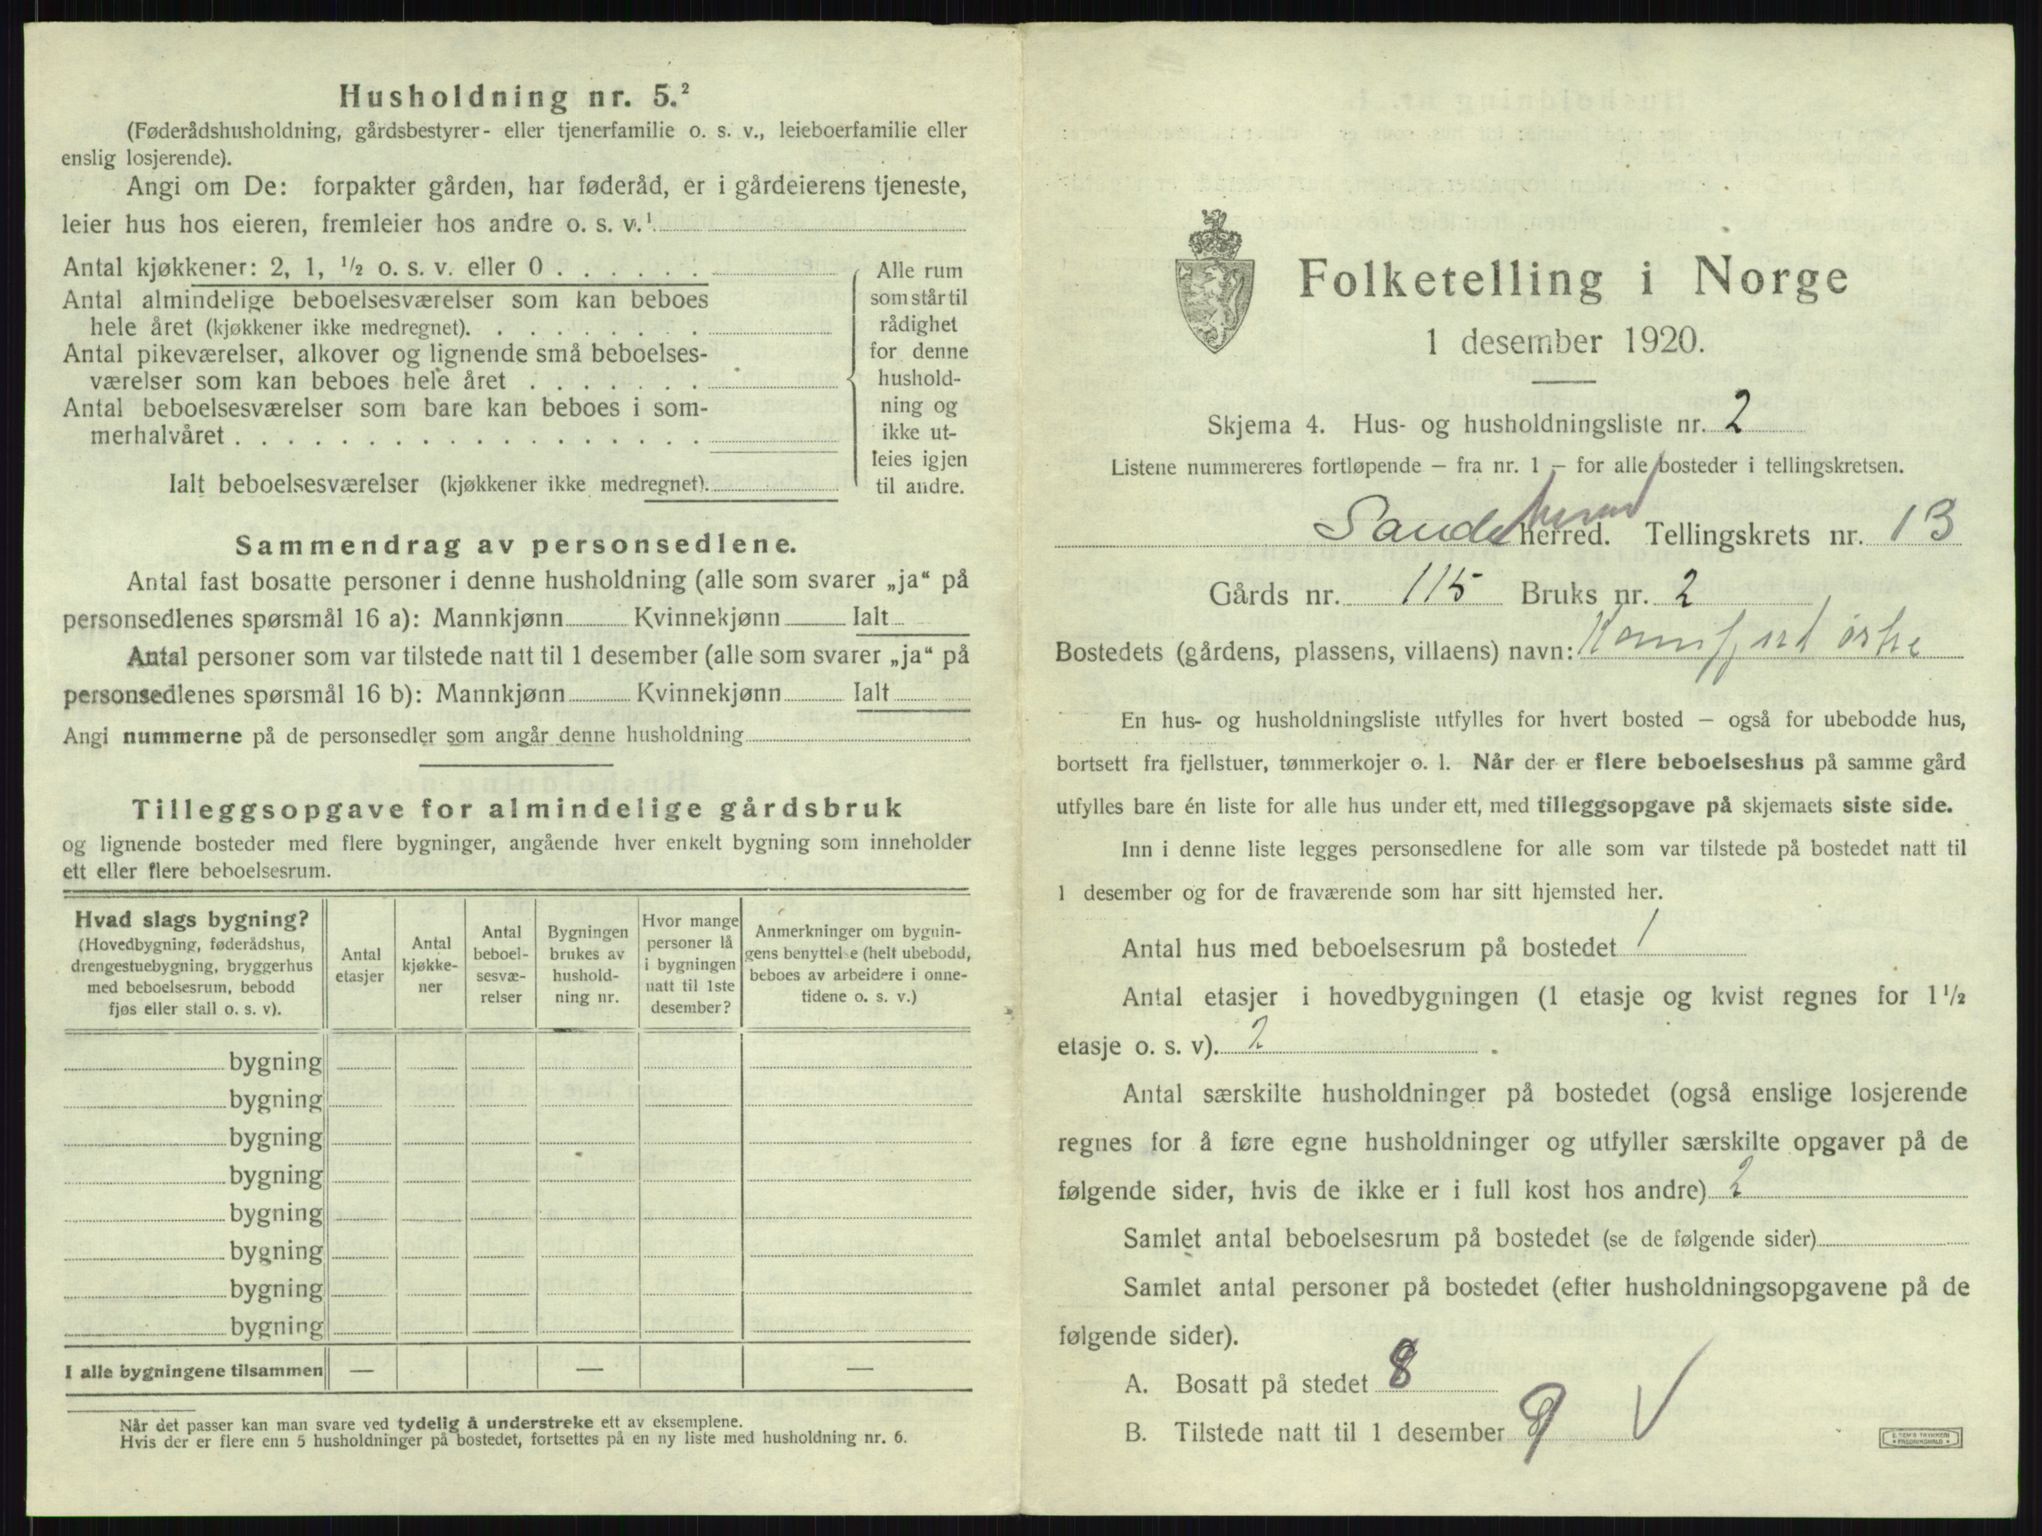 Husholdning nr. 5.²
(Føderådshusholdning, gårdsbestyrer- eller tjenerfamilie o. s. v., leieboerfamilie eller
enslig losjerende).
Angi om De: forpakter gården, har føderåd, er i gårdeierens tjeneste,
leier hus hos eieren, fremleier hos andre o. s. v.¹
Antal kjøkkener: 2, 1, ½ o. s. v. eller 0 . . . . . .
Antal almindelige beboelsesværelser som kan beboes
hele året (kjøkkener ikke medregnet). . . . . . . . .
Antal pikeværelser, alkover og lignende små beboelses-
værelser som kan beboes hele året . . . . . . .
Antal beboelsesværelser som bare kan beboes i som-
merhalvåret . . . . . . . . . . . . . . . . . .
Ialt beboelsesværelser (kjøkkener ikke medregnet).
Alle rum
som står til
rådighet
for denne
hushold-
ning og
ikke ut-
leies igjen
til andre.
Sammendrag av personsedlene.
Antal fast bosatte personer i denne husholdning (alle som svarer „ja“ på
personsedlenes spørsmål 16 a): Mannkjønn Kvinnekjønn Ialt
Antal personer som var tilstede natt til 1 desember (alle som svarer „ja“ på
personsedlenes spørsmål 16 b): Mannkjønn Kvinnekjønn Ialt
Angi nummerne på de personsedler som angår denne husholdning
Tilleggsopgave for almindelige gårdsbruk
og lignende bosteder med flere bygninger, angående hver enkelt bygning som inneholder
ett eller flere beboelsesrum.
Hvad slags bygning?
(Hovedbygning, føderådshus,
drengestuebygning, bryggerhus
med beboelsesrum, bebodd
fjøs eller stall o. s. v).
Antal
etasjer
Antal
kjøkke-
ner
Antal
beboel-
sesvæ-
relser
Bygningen
brukes av
hushold-
ning nr.
Hvor mange
personer lå
i bygningen
natt til 1ste
desember?
Anmerkninger om bygnin-
gens benyttelse (helt ubebodd,
beboes av arbeidere i onne-
tidene o. s. v.)
bygning
bygning
bygning
bygning
bygning
bygning
bygning
bygning
I alle bygningene tilsammen — — —
Når det passer kan man svare ved tydelig å understreke ett av eksemplene.
Hvis der er flere enn 5 husholdninger på bostedet, fortsettes på en ny liste med husholdning nr. 6.
Folketelling i Norge
1 desember 1920.
Skjema 4. Hus- og husholdningsliste nr. 2
Listene nummereres fortløpende – fra nr. 1 – for alle bosteder i tellingskretsen.
Sande herred. Tellingskrets nr. 13
Gårds nr. 115 Bruks nr. 2
Bostedets (gårdens, plassens, villaens) navn:
En hus- og husholdningsliste utfylles for hvert bosted – også for ubebodde hus,
bortsett fra fjellstuer, tømmerkojer o. l. Når der er flere beboelseshus på samme gård
utfylles bare én liste for alle hus under ett, med tilleggsopgave på skjemaets siste side.
Inn i denne liste legges personsedlene for alle som var tilstede på bostedet natt til
1 desember og for de fraværende som har sitt hjemsted her.
Antal hus med beboelsesrum på bostedet 1
Antal etasjer i hovedbygningen (1 etasje og kvist regnes for 1½
etasje o. s. v). 2
Antal særskilte husholdninger på bostedet (også enslige losjerende
regnes for å føre egne husholdninger og utfyller særskilte opgaver på de
følgende sider, hvis de ikke er i full kost hos andre) 2
Samlet antal beboelsesrum på bostedet (se de følgende sider)
Samlet antal personer på bostedet (efter husholdningsopgavene på de
følgende sider).
A. Bosatt på stedet 8
B. Tilstede natt til 1 desember 9 V